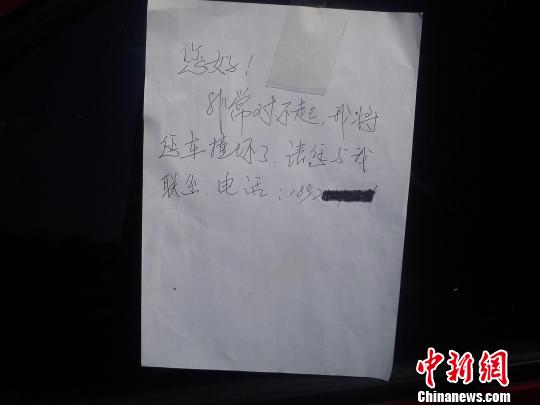 您好!
非常对不起,我将
您车撞坏了.请您与我
联系.电话:1892
中新网
Chinanews.com